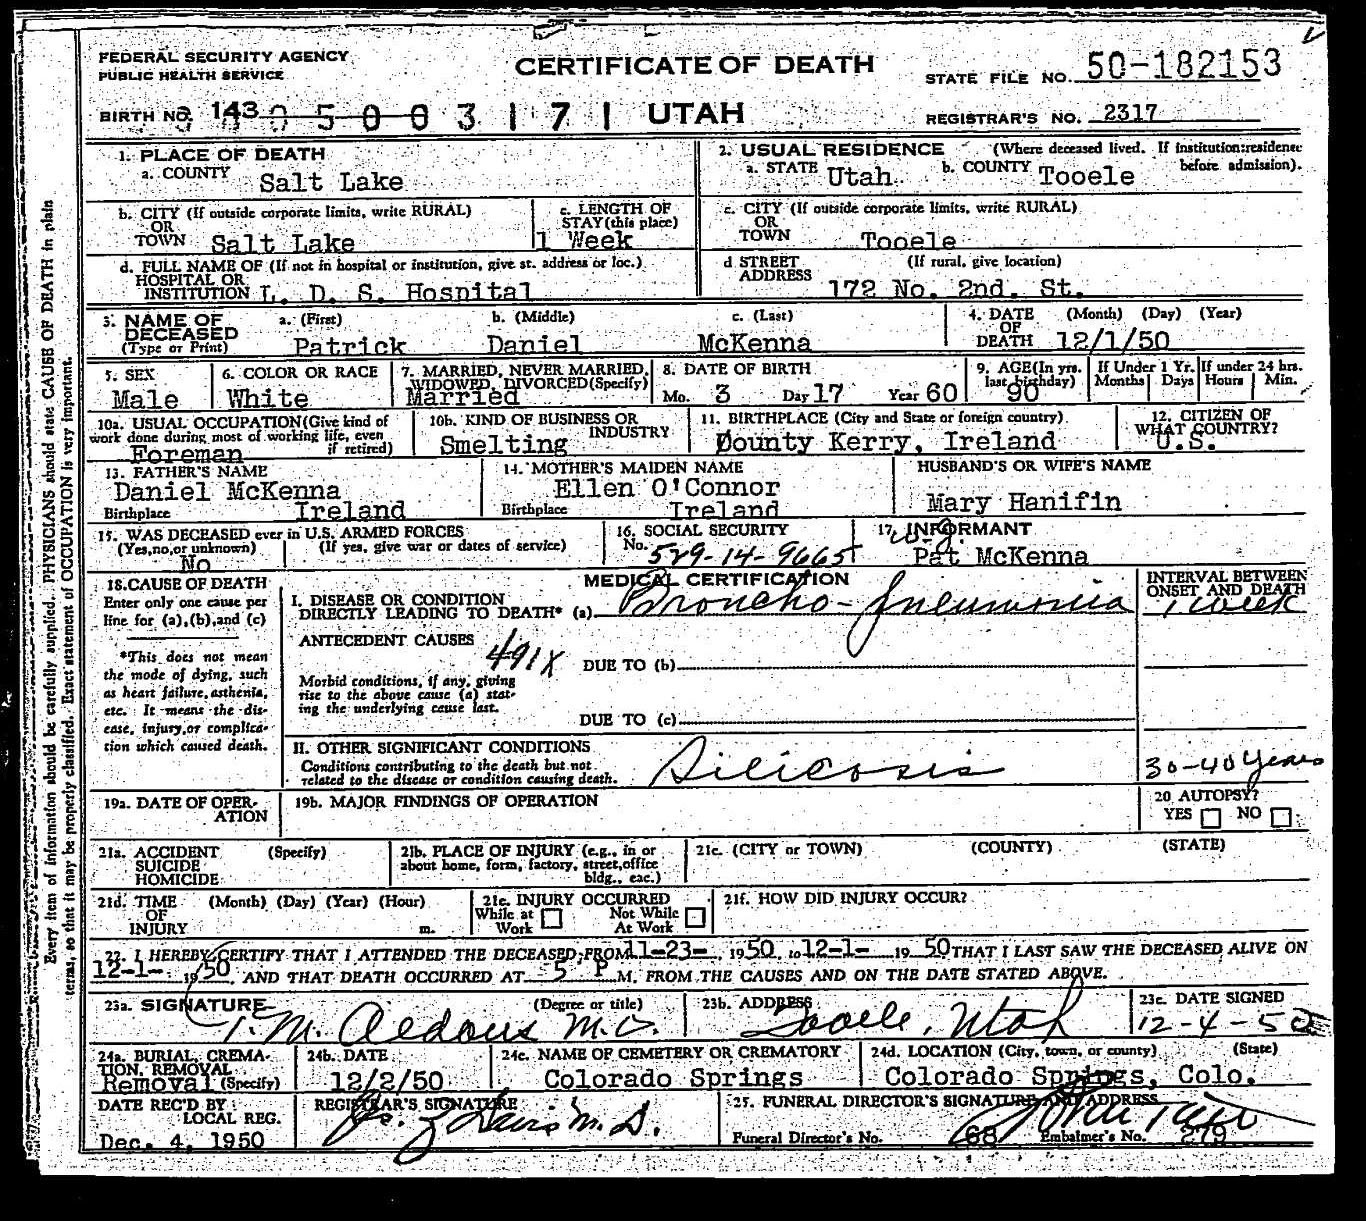 FEDERAL SECURITY AGENCY
PUBLIC HEALTH SERVICE
CERTIFICATE OF DEATH
STATE FILE NO. 50-182153
BIRTH NO. 143
UTAH
REGISTRAR'S NO. 2317
1. PLACE OF DEATH
a. COUNTY Salt Lake
2. USUAL RESIDENCE (Where deceased lived. If institution:residence before admission).
a. STATE Utah b. COUNTY Tooele
b. CITY (If outside corporate limits, write RURAL)
OR
TOWN Salt Lake
c. LENGTH OF
STAY (this place)
1 Week
c. CITY (If outside corporate limits, write RURAL)
OR
TOWN Tooele
d. FULL NAME OF (If not in hospital or institution, give st. address or loc.)
HOSPITAL OR
INSTITUTION L. D. S. Hospital
d STREET (If rural, give location)
ADDRESS 172 No. 2nd. St.
3. NAME OF a. (First) b. (Middle) c. (Last)
DECEASED
(Type or Print) Patrick Daniel McKenna
4. DATE (Month) (Day) (Year)
OF
DEATH 12/1/50
5. SEX
Male
6. COLOR OR RACE
White
7. MARRIED, NEVER MARRIED,
WIDOWED, DIVORCED (Specify)
Married
8. DATE OF BIRTH
Mo. 3 Day 17 Year 60
9. AGE (In yrs.
last birthday)
90
If Under 1 Yr.
Months Days
If under 24 hrs.
Hours Min.
10a. USUAL OCCUPATION (Give kind of
work done during most of working life, even
if retired)
Foreman
10b. KIND OF BUSINESS OR
INDUSTRY
Smelting
11. BIRTHPLACE (City and State or foreign country).
County Kerry, Ireland
12. CITIZEN OF
WHAT COUNTRY?
U.S.
13. FATHER'S NAME
Daniel McKenna
Birthplace Ireland
14. MOTHER'S MAIDEN NAME
Ellen O'Connor
Birthplace Ireland
HUSBAND'S OR WIFE'S NAME
Mary Hanifin
15. WAS DECEASED ever in U.S. ARMED FORCES
(Yes, no, or unknown) (If yes, give war or dates of service)
No
16. SOCIAL SECURITY
No. 529-14-9665
17. INFORMANT
Pat McKenna
18. CAUSE OF DEATH
Enter only one cause per
line for (a), (b), and (c)
*This does not mean
the mode of dying, such
as heart failure, asthenia,
etc. It means the dis-
ease, injury, or complica-
tion which caused death.
MEDICAL CERTIFICATION
INTERVAL BETWEEN
ONSET AND DEATH
I. DISEASE OR CONDITION
DIRECTLY LEADING TO DEATH* (a) Broncho-pneumonia 1 week
ANTECEDENT CAUSES
491X
DUE TO (b)
Morbid conditions, if any, giving
rise to the above cause (a) stat-
ing the underlying cause last.
DUE TO (c)
II. OTHER SIGNIFICANT CONDITIONS
Conditions contributing to the death but not
related to the disease or condition causing death.
Silicosis 30-40 years
19a. DATE OF OPER-
ATION
19b. MAJOR FINDINGS OF OPERATION
20 AUTOPSY?
YES NO
21a. ACCIDENT (Specify)
SUICIDE
HOMICIDE
21b. PLACE OF INJURY (e.g., in or
about home, form, factory, street, office
bldg., eac.)
21c. (CITY or TOWN) (COUNTY) (STATE)
21d. TIME (Month) (Day) (Year) (Hour)
OF
INJURY m.
21e. INJURY OCCURRED
While at Work Not While At Work
21f. HOW DID INJURY OCCUR?
22. I HEREBY CERTIFY THAT I ATTENDED THE DECEASED FROM 11-23-, 1950, to 12-1- 1950 THAT I LAST SAW THE DECEASED ALIVE ON
12-1-, 1950, AND THAT DEATH OCCURRED AT 5 P M. FROM THE CAUSES AND ON THE DATE STATED ABOVE.
23a. SIGNATURE (Degree or title)
T. M. Aldous M.D.
23b. ADDRESS
Tooele, Utah
23c. DATE SIGNED
12-4-50
24a. BURIAL, CREMA-
TION, REMOVAL
Removal (Specify)
24b. DATE
12/2/50
24c. NAME OF CEMETERY OR CREMATORY
Colorado Springs
24d. LOCATION (City, town, or county) (State)
Colorado Springs, Colo.
DATE REC'D BY
LOCAL REG.
Dec. 4, 1950
REGISTRAR'S SIGNATURE
M.D.
25. FUNERAL DIRECTOR'S SIGNATURE AND ADDRESS
Funeral Director's No. 68 Embalmer's No. 279
Every item of information should be carefully supplied. PHYSICIANS should state CAUSE OF DEATH in plain
terms, so that it may be properly classified. Exact statement of OCCUPATION is very important.